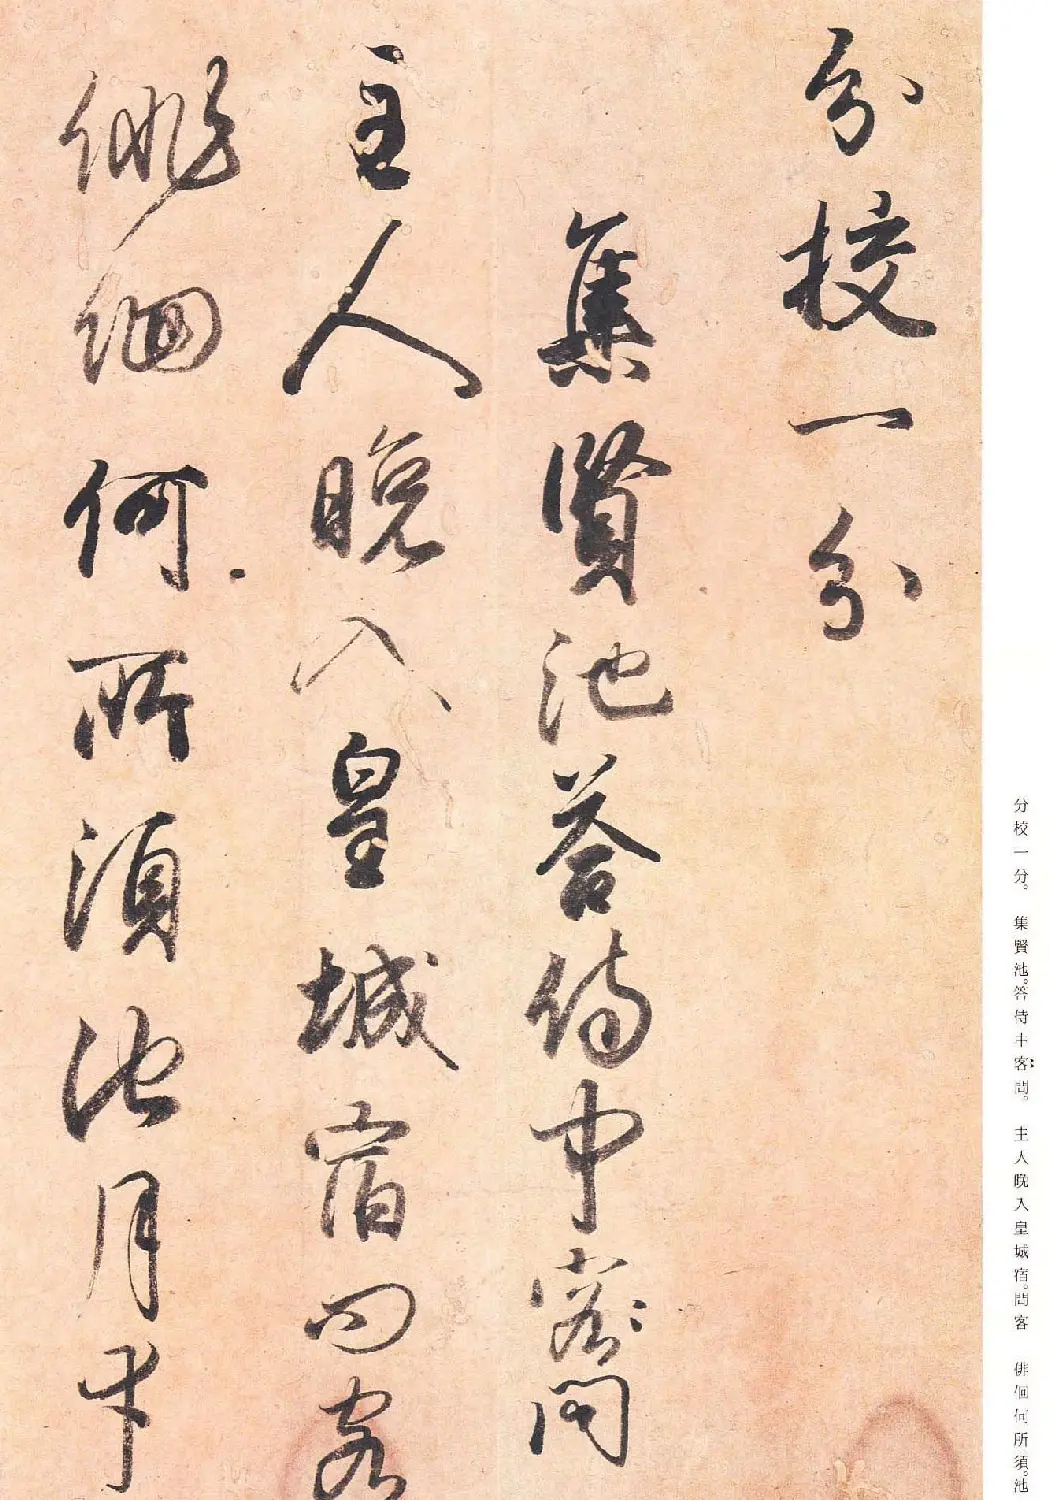 分校一分
集賢池答侍中客問
主人晚入皇城宿問客
俳佪何所須池月才
分校一分。 集賢池。答侍中客問。 主人晚入皇城宿。問客 俳佪何所須。池